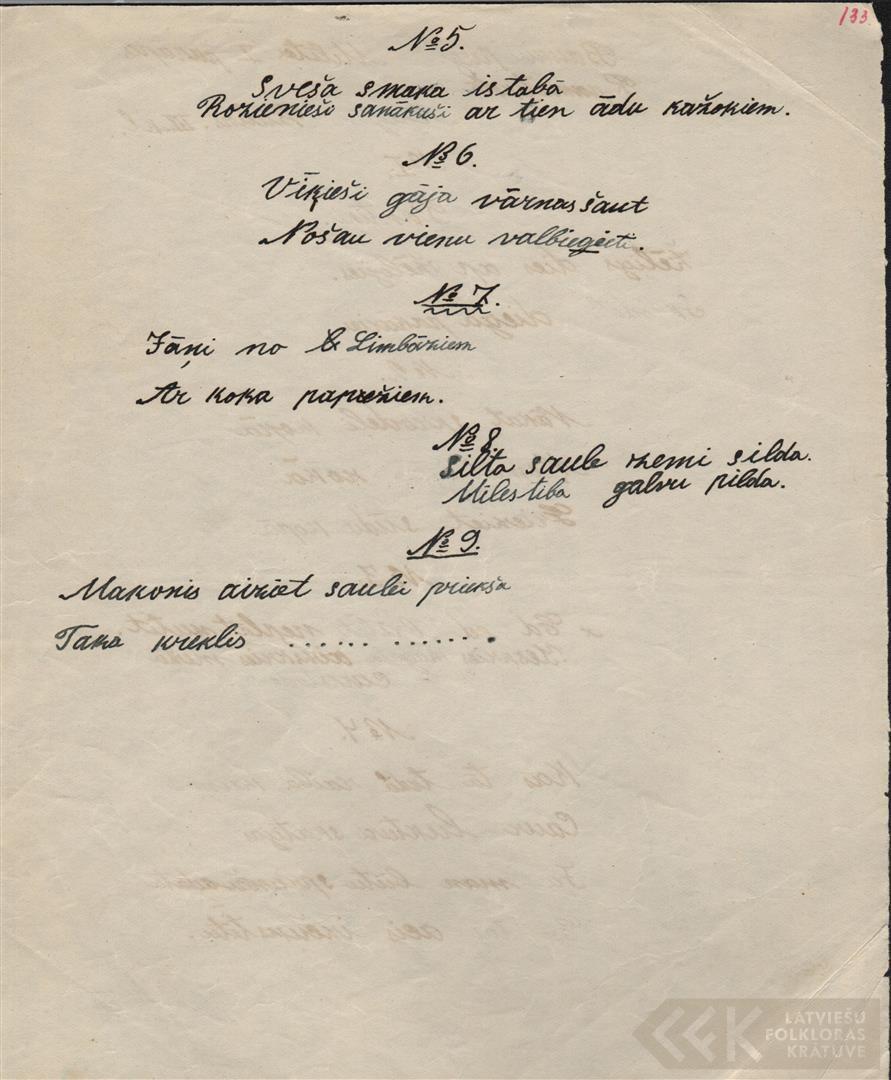 133
№ 5.
Sveša smaka istabā
Rozienieši sanākuši ar tien ādu kažokiem.
№ 6.
Vīķieši gāja vārnas šaut
Nošau vienu
№ 7.
Jāņi no Limbāziem
Ar koka papēžiem.
№ 8.
Silta saule zemi silda.
Mīlestība galvu pilda.
№ 9.
Makonis aiziet saulei priekša
Taka kreklis ...... ...... .
LATVIEŠU
FOLKLORAS
KRĀTUVE